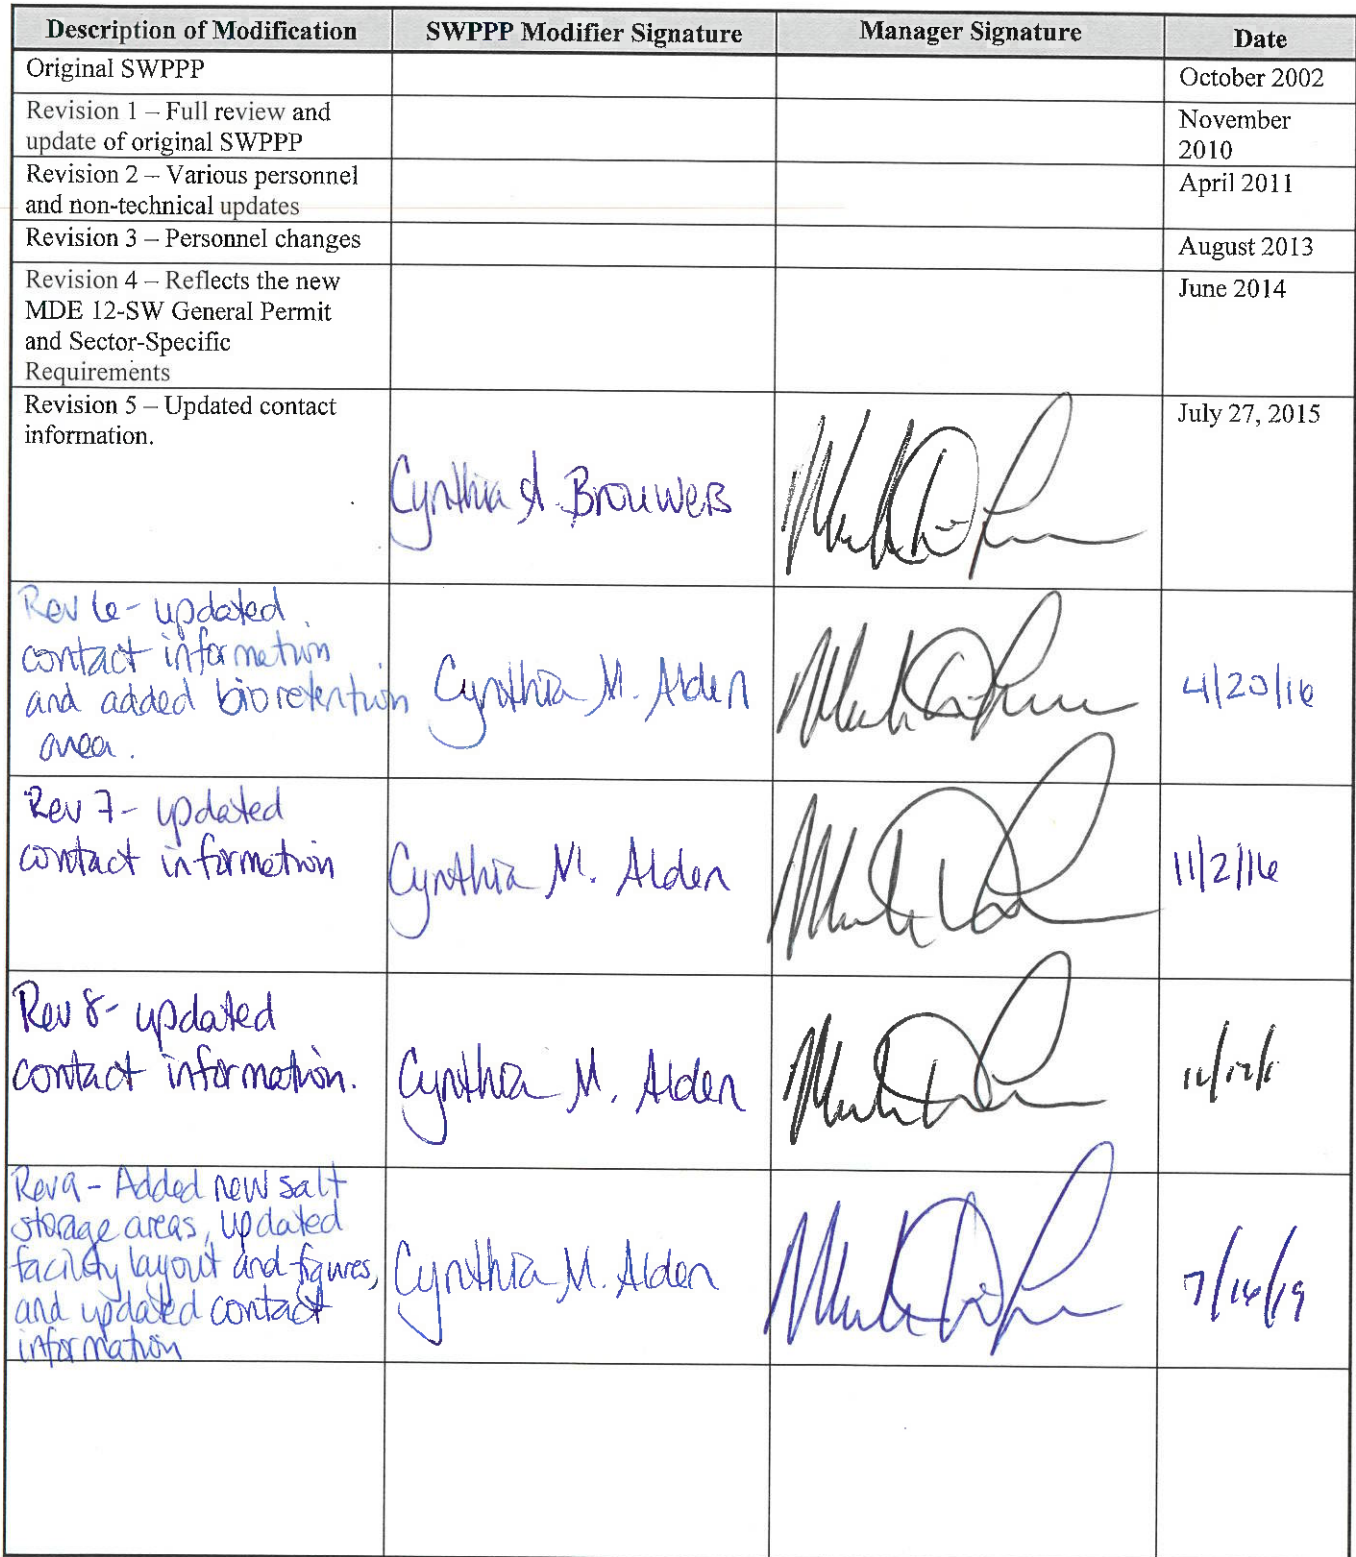 Description of Modification SWPPP Modifier Signature Manager Signature Date
Original SWPPP October 2002
Revision 1 – Full review and
update of original SWPPP
November
2010
Revision 2 – Various personnel
and non-technical updates
April 2011
Revision 3 – Personnel changes August 2013
Revision 4 – Reflects the new
MDE 12-SW General Permit
and Sector-Specific
Requirements
June 2014
Revision 5 – Updated contact
information.
Cynthia A. Brouwers
July 27, 2015
Rev 6 - updated
contact information
and added bioretention
area.
Cynthia M. Alden
4/20/16
Rev 7 - updated
contact information
Cynthia M. Alden
11/2/16
Rev 8 - updated
contact information.
Cynthia M. Alden
Rev 9 - Added new salt
storage areas, updated
facility layout and figures,
and updated contact
information
Cynthia M. Alden
7/16/19